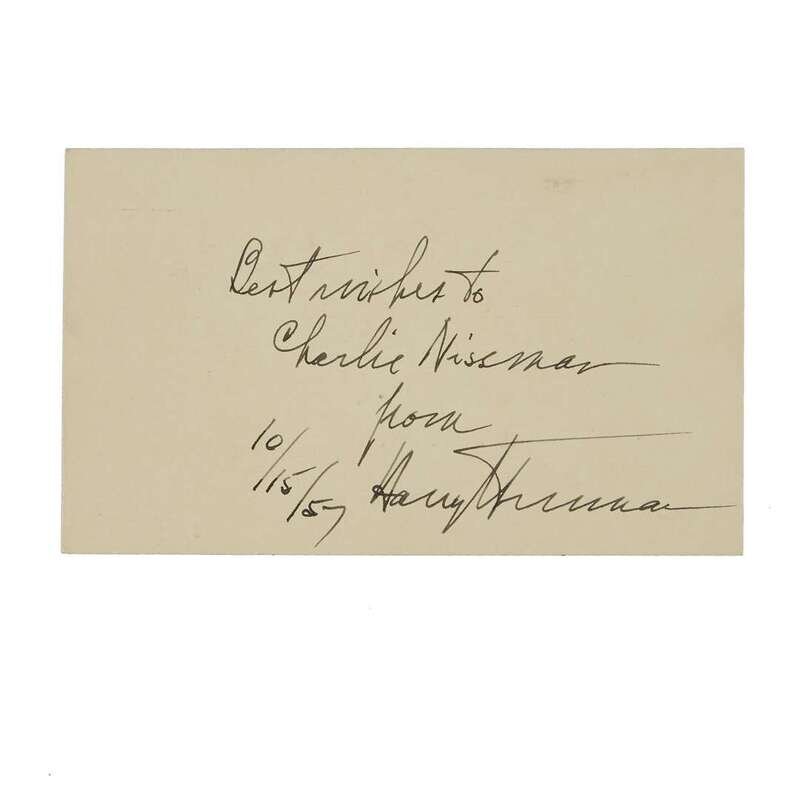 Best wishes to
Charlie Nissman
from
10/15/57 Harry Truman